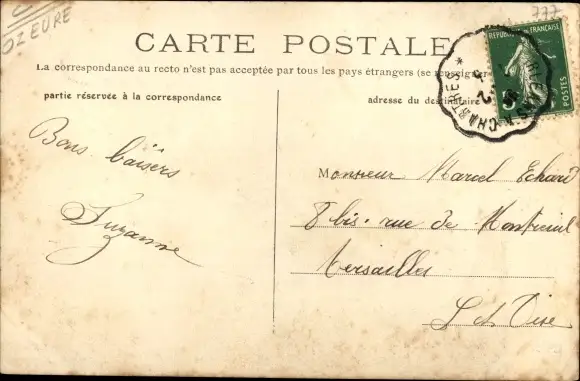 OZ EURE
777
CARTE POSTALE
La correspondance au recto n'est pas acceptée par tous les pays étrangers (se renseigner
partie réservée à la correspondance
adresse du destinataire
REPUBLIQUE FRANÇAISE
5
POSTES
CHARTRES *
Bons baisers
Suzanne
Monsieur Marcel Echard
8 bis. rue de Montreuil
Versailles
S et Oise.